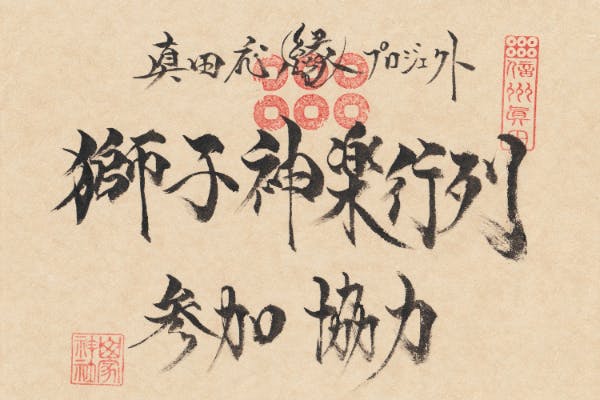 真田応（縁）プロジェクト
獅子神楽行列
参加協力
信州真田